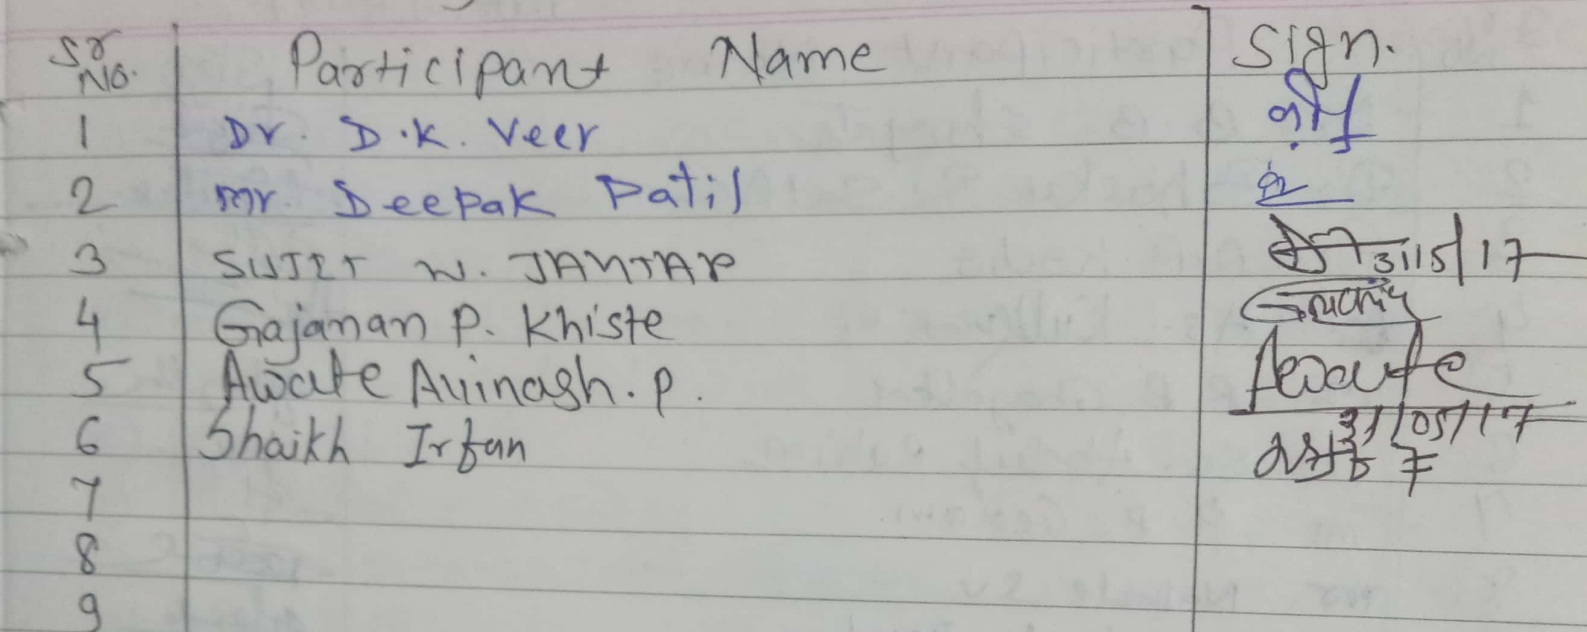 Sr No. Participant Name Sign.
1 Dr. D.K. Veer
2 Mr. Deepak Patil
3 SUJIT W. JANJAR 31/5/17
4 Gajanan P. Khiste
5 Awate Avinash. P. Awate 31/05/17
6 Shaikh Irfan
7
8
9